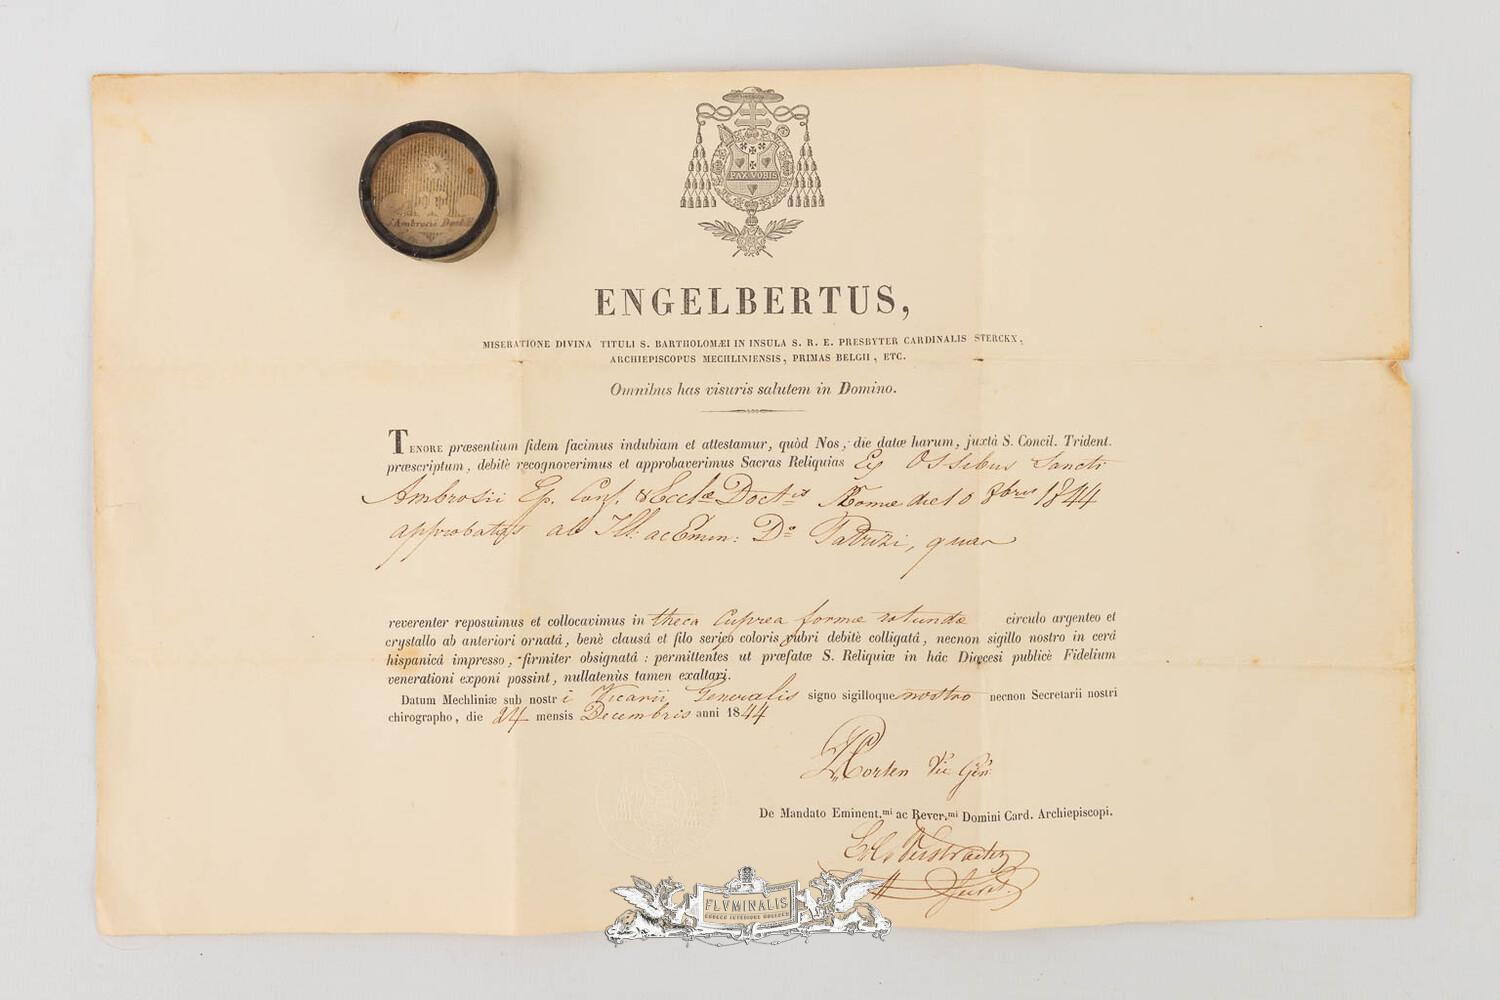 PAX VOBIS
S. Ambrosii Doct.
ENGELBERTUS,
MISERATIONE DIVINA TITULI S. BARTHOLOMÆI IN INSULA S. R. E. PRESBYTER CARDINALIS STERCKX,
ARCHIEPISCOPUS MECHLINIENSIS, PRIMAS BELGII, ETC.
Omnibus has visuris salutem in Domino.
TENORE præsentium fidem facimus indubiam et attestamur, quòd Nos, die datæ harum, juxtà S. Concil. Trident.
præscriptum, debitè recognoverimus et approbaverimus Sacras Reliquias Ex Ossibus Sancti
Ambrosii Ep. Conf. & Eccl.æ Doct.is Romæ die 10 8bris 1844
approbatas ab Ill: ac Emin: D.o Patrizi, quas
reverenter reposuimus et collocavimus in theca cuprea formæ rotundæ circulo argenteo et
crystallo ab anteriori ornatâ, benè clausâ et filo serico coloris rubri debitè colligatâ, necnon sigillo nostro in cerâ
hispanicâ impresso, firmiter obsignatâ : permittentes ut præfatæ S. Reliquiæ in hâc Diœcesi publicè Fidelium
venerationi exponi possint, nullatenùs tamen exaltari.
Datum Mechliniæ sub nostri Vicarii Generalis signo sigilloque nostro necnon Secretarii nostri
chirographo, die 24 mensis Decembris anni 1844
Vic Gen
De Mandato Eminent.mi ac Rever.mi Domini Card. Archiepiscopi.
FLVMINALIS